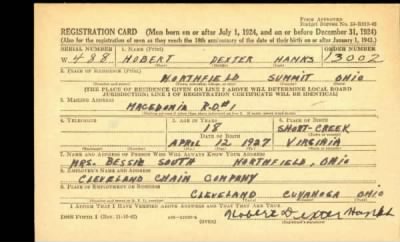 Form Approved
REGISTRATION CARD (Men born on or after July 1, 1924, and on or before December 31, 1924)
(Also for the registration of men as they reach the 18th anniversary of the date of their birth on or after January 1, 1943.)
SERIAL NUMBER 1. NAME (Print) ORDER NUMBER
W 488 HOBERT DEXTER HANKS 13002
2. PLACE OF RESIDENCE (Print)
NORTHFIELD SUMMIT OHIO
[THE PLACE OF RESIDENCE GIVEN ON LINE 2 ABOVE WILL DETERMINE LOCAL BOARD
JURISDICTION; LINE 2 OF REGISTRATION CERTIFICATE WILL BE IDENTICAL]
3. MAILING ADDRESS
MACEDONIA R.D.#1
4. TELEPHONE 5. AGE IN YEARS 6. PLACE OF BIRTH
18 SHORT-CREEK
DATE OF BIRTH
APRIL 12 1927 VIRGINIA
7. NAME AND ADDRESS OF PERSON WHO WILL ALWAYS KNOW YOUR ADDRESS
MRS. BESSIE SOUTH NORTHFIELD, OHIO
8. EMPLOYER'S NAME AND ADDRESS
CLEVELAND CHAIN COMPANY
9. PLACE OF EMPLOYMENT OR BUSINESS
CLEVELAND CUYAHOGA OHIO
I AFFIRM THAT I HAVE VERIFIED ABOVE ANSWERS AND THAT THEY ARE TRUE.
DSS Form 1 (Rev. 11-16-42) (OVER) Hobert Dexter Hanks